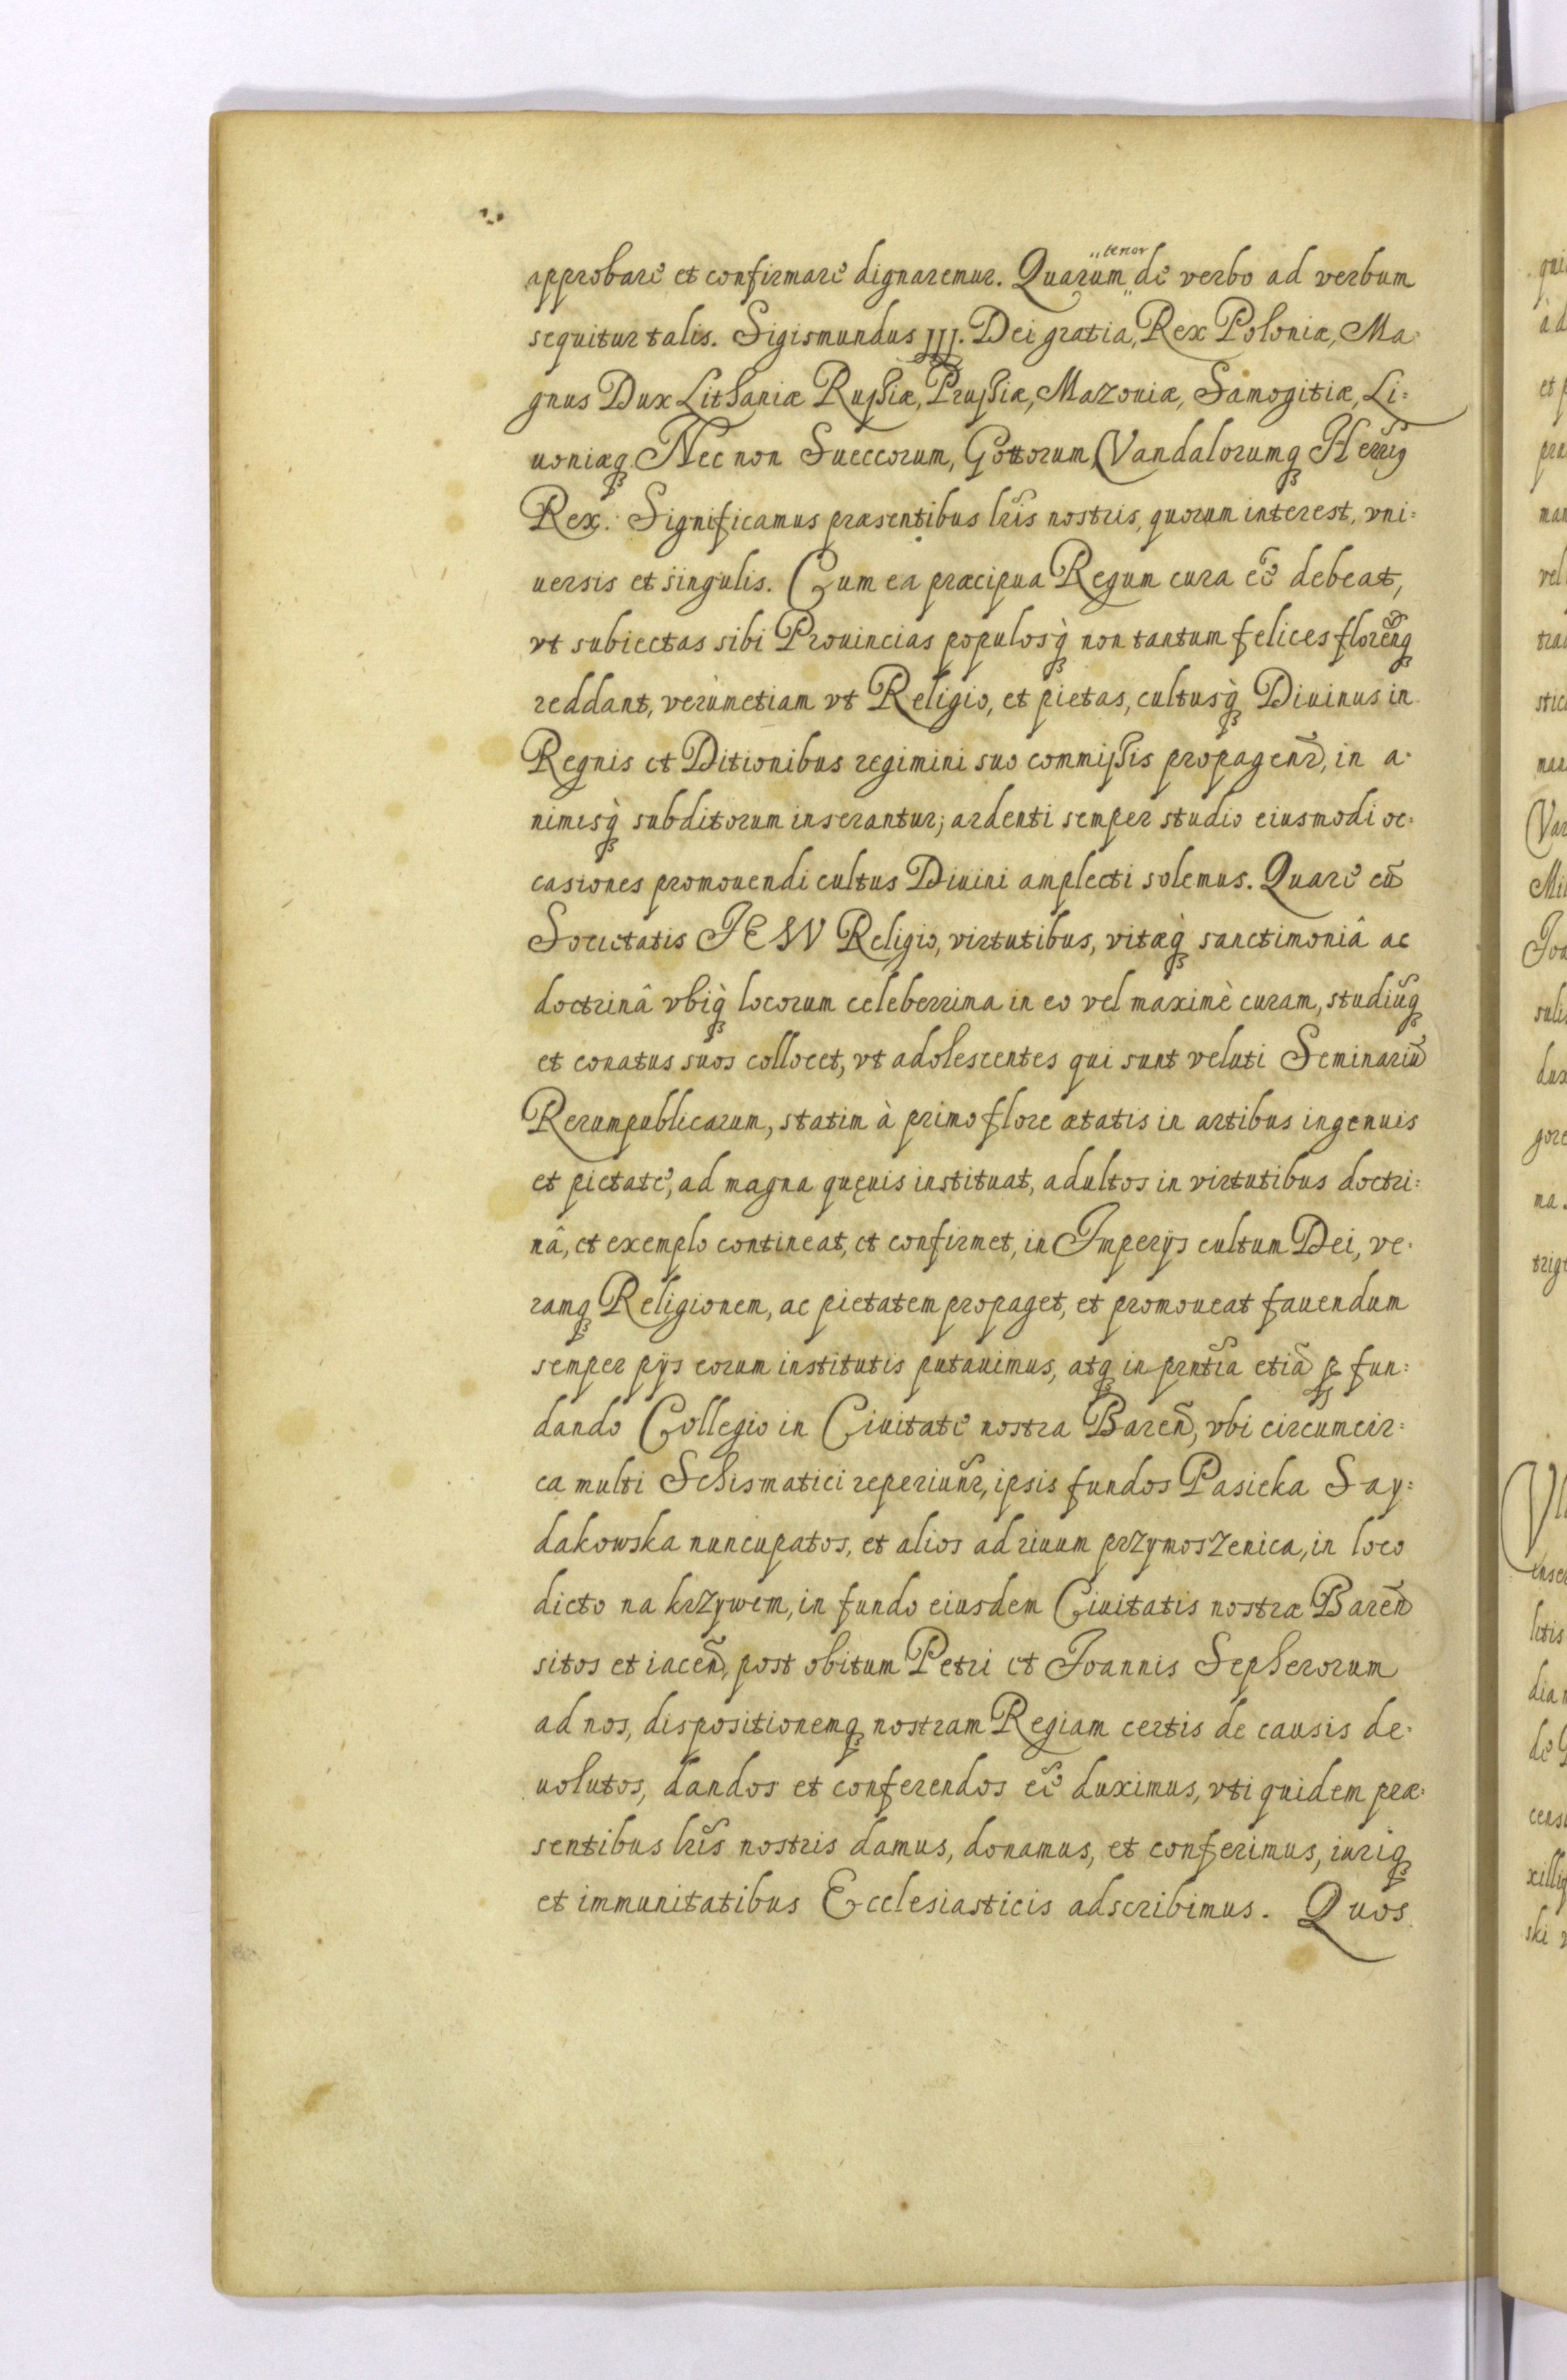 approbare et confirmare dignaremur. Quarum „tenor„ de verbo ad verbum
sequitur talis. Sigismundus III. Dei gratia, Rex Poloniæ, Ma-
gnus Dux Lithaniæ Russiæ, Prussiæ, Mazoviæ, Samogitiæ, Li=
uoniæq̢ Nec non Sueccorum, Gottorum, Vandalorumq̢
Rex. Significamus præsentibus lr̃is nostris, quorum interest, vni=
uersis et singulis. Cum ea præcipua Regum cura eẽ debeat,
vt subiectas sibi Prouincias populosq̢̀ non tantum felices florẽnq̢
reddant, verùmetiam vt Religio, et pietas, cultusq̢̀ Diuinus in
Regnis et Ditionibus regimini suo commissis propagenr̃, in a-
nimisq̢̀ subditorum inserantur; ardenti semper studio eiusmodi oc-
casiones promouendi cultus Diuini amplecti solemus. Quare cũ
Societatis IESV Religio, virtutibus, vitæq̢̀ sanctimoniâ ac
doctrinâ vbiq̢̀ locorum celeberrima in eo vel maximè curam, studiũq̢
et conatus suos collocet, vt adolescentes qui sunt veluti Seminariũ
Rerumpublicarum, statim à primo flore ætatis in artibus ingenuis
et pietate, ad magna quęuis instituat, adultos in virtutibus doctri=
nâ, et exemplo contineat, et confirmet, in Imperijs cultum Dei, ve-
ramq̢ Religionem, ac pietatem propaget, et promoueat fauendum
semper pijs eorum institutis putauimus, atq̢ in prñtia etiã ꝓ fun=
dando Collegio in Ciuitate nostra Bareñ, vbi circumcir=
ca multi Schismatici reperiunr̃, ipsis fundos Pasieka Say=
dakowska nuncupatos, et alios ad riuum przymoszenica, in loco
dicto na krzywem, in fundo eiusdem Ciuitatis nostræ Bareñ
sitos et iaceñ, post obitum Petri et Joannis Sepherorum
ad nos, dispositionemq̢ nostram Regiam certis de causis de-
uolutos, dandos et conferendos eẽ duximus, vti quidem præ-
sentibus lr̃is nostris damus, donamus, et conferimus, iuriq̢
et immunitatibus Ecclesiasticis adscribimus. Quos